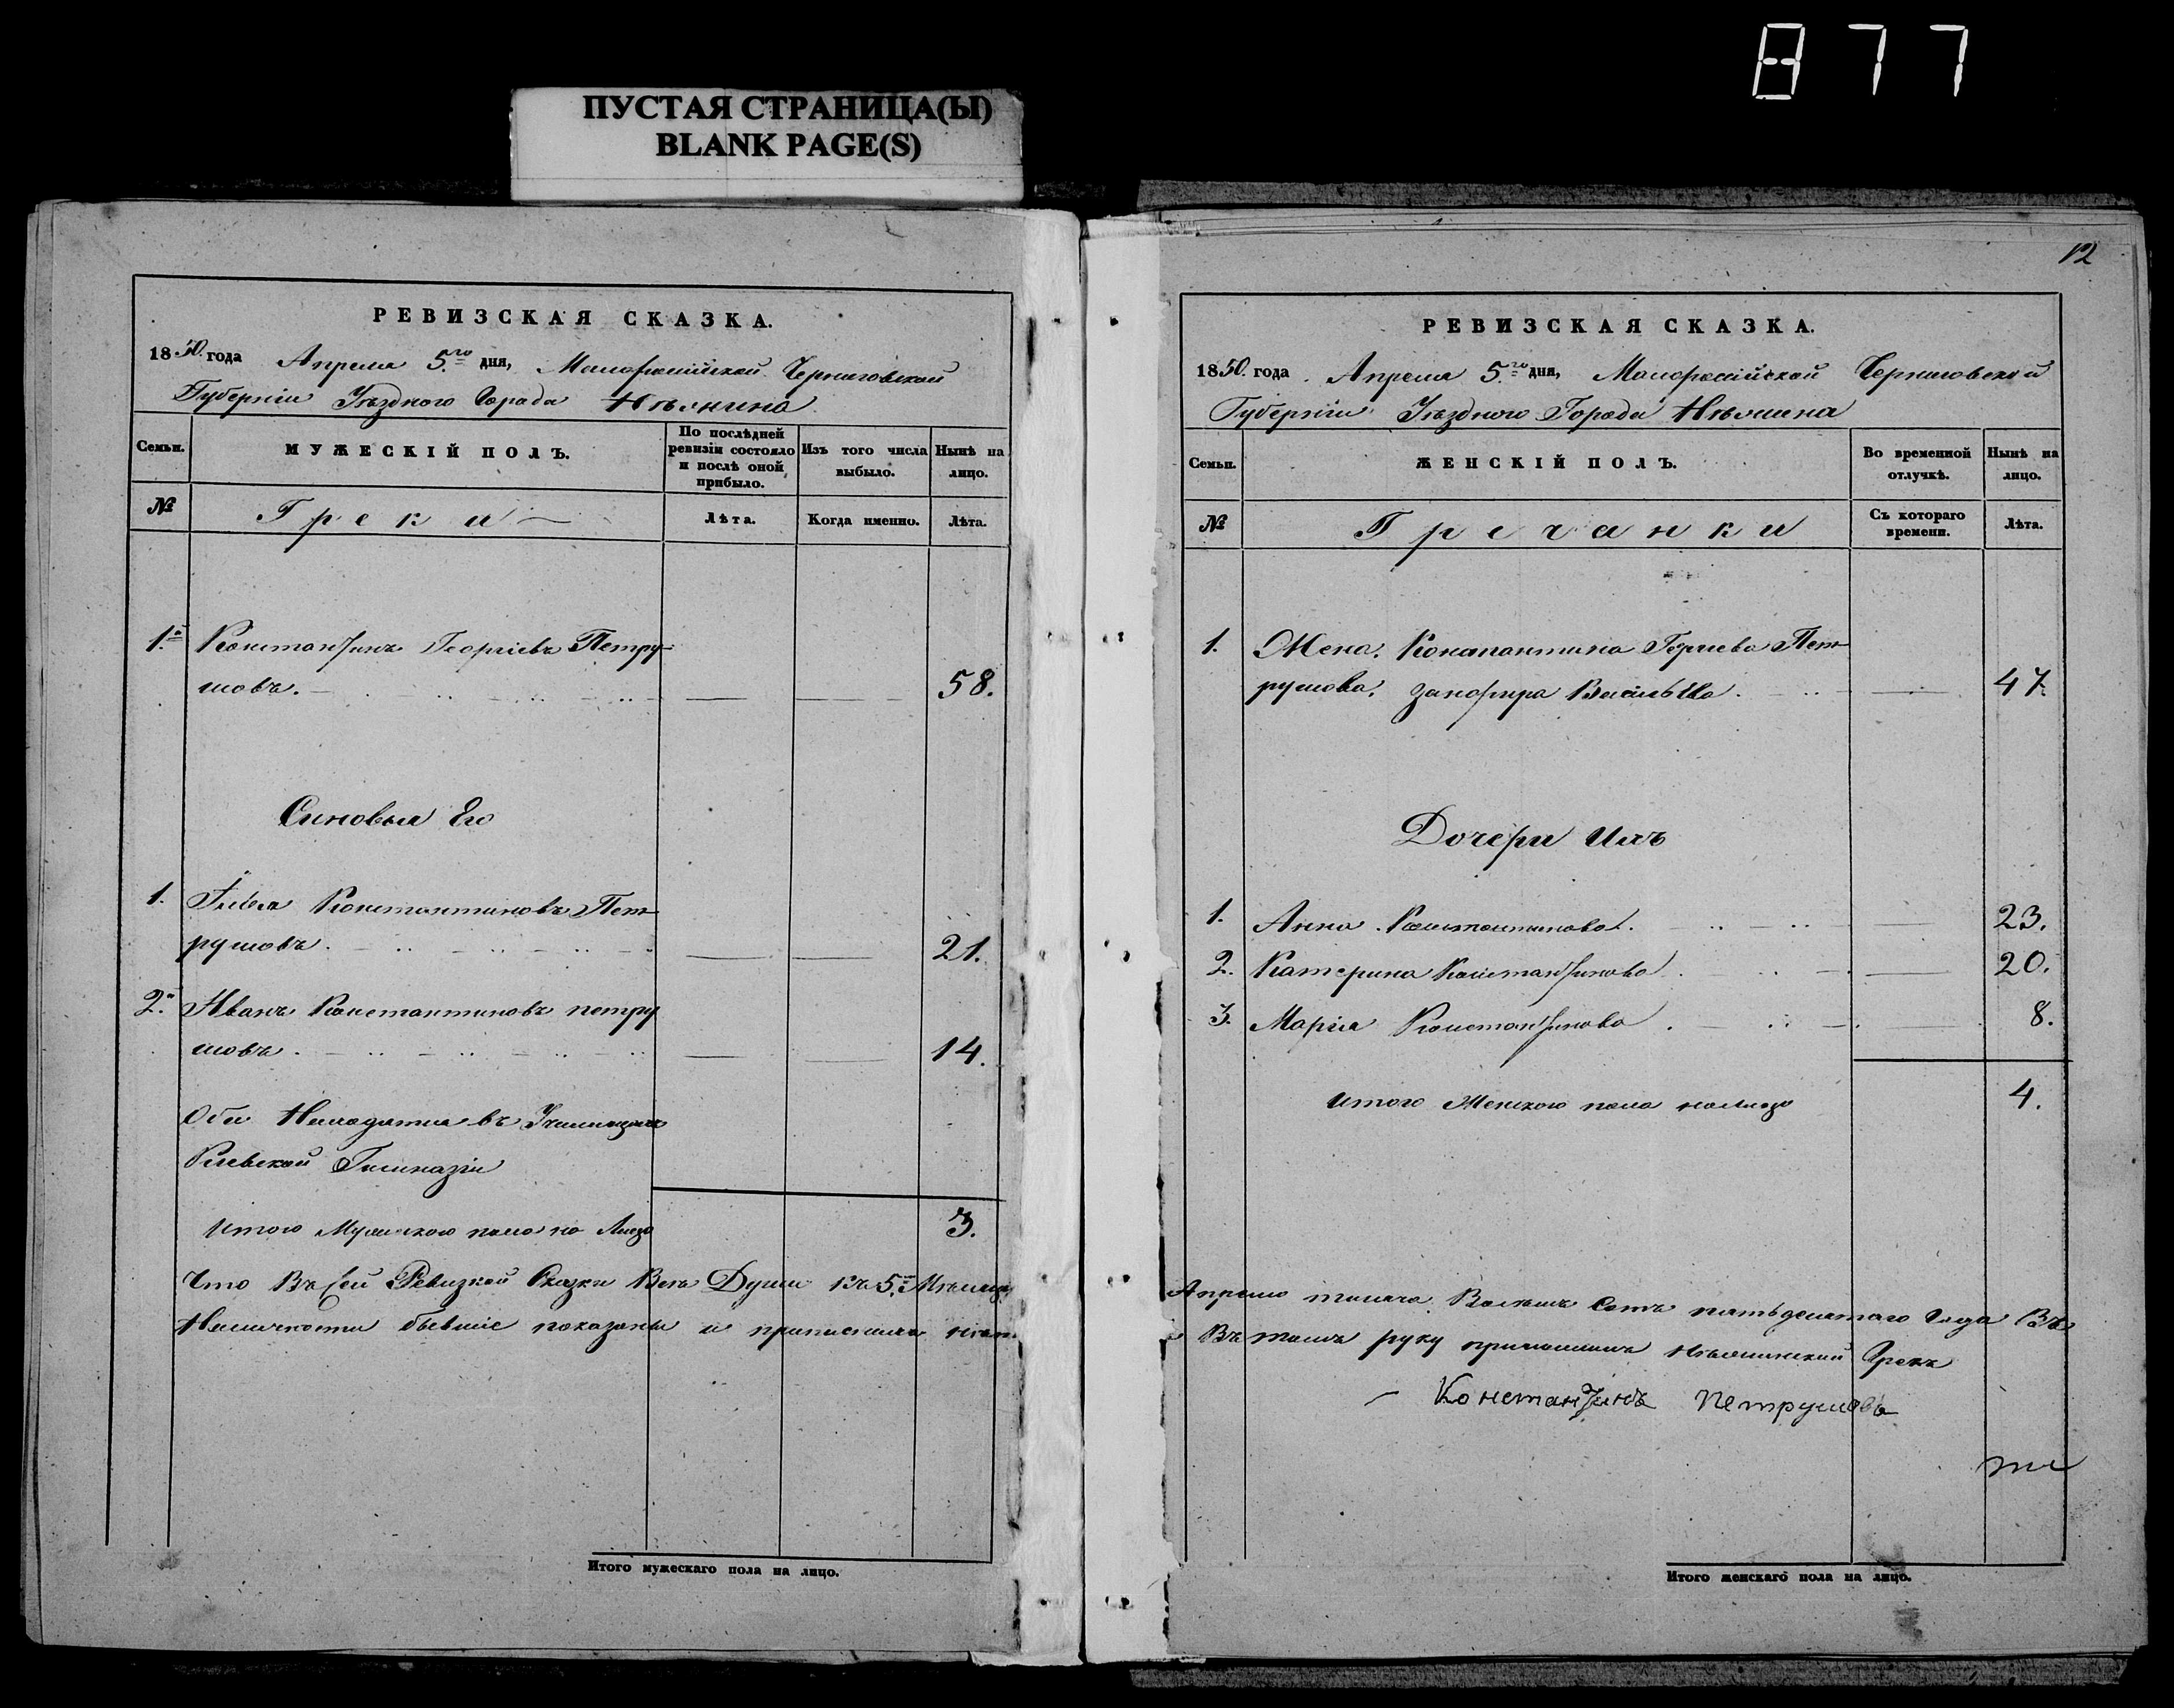 877
ПУСТАЯ СТРАНИЦА(Ы)
BLANK PAGE(S)
РЕВИЗСКАЯ СКАЗКА.
1850. года Апреля 5.го дня, Малоросійской Черниговской
Губерніи Уѣзднаго Города Нѣжина
Семьи.
МУЖЕСКІЙ ПОЛЪ.
По послѣдней ревизіи состояло и послѣ оной прибыло.
Изъ того числа выбыло.
Нынѣ на лицо.
№
Греки
Лѣта.
Когда именно.
Лѣта.
1. Константинъ Георгіевъ Петру-
шовъ. 58.
Синовья Его
1. Константиновъ Пет-
рушовъ. 21.
2. Иванъ Константиновъ петру
шовъ. 14.
въ
Киевской Гимназіи
Итого Мужскаго пола на Лицо 3.
Что Въ сей Ревизкой Сказки Всѣ Души къ 5.
бывшіе показаны и
Итого мужескаго пола на лицо.
12
РЕВИЗСКАЯ СКАЗКА.
1850. года. Апреля 5.го дня, Малоросійской Черниговской
Губерніи Уѣзднаго Города Нѣжина
Семьи.
ЖЕНСКІЙ ПОЛЪ.
Во временной отлучкѣ.
Нынѣ на лицо.
№
Гречанки
Съ котораго времени.
Лѣта.
1. Жена. Константина Пет-
рушова, Васильева. 47.
Дочери Ихъ
1. Анна. Константинова. 23.
2. Катерина Константинова. 20.
3. Марія Константинова. 8.
Итого Женского пола налицо 4.
Апреля тисяча сотъ пятьдесятаго Года Въ
Въ томъ руку Нѣжинский Грекъ
Константинъ Петрушовъ
Итого женскаго пола на лицо.